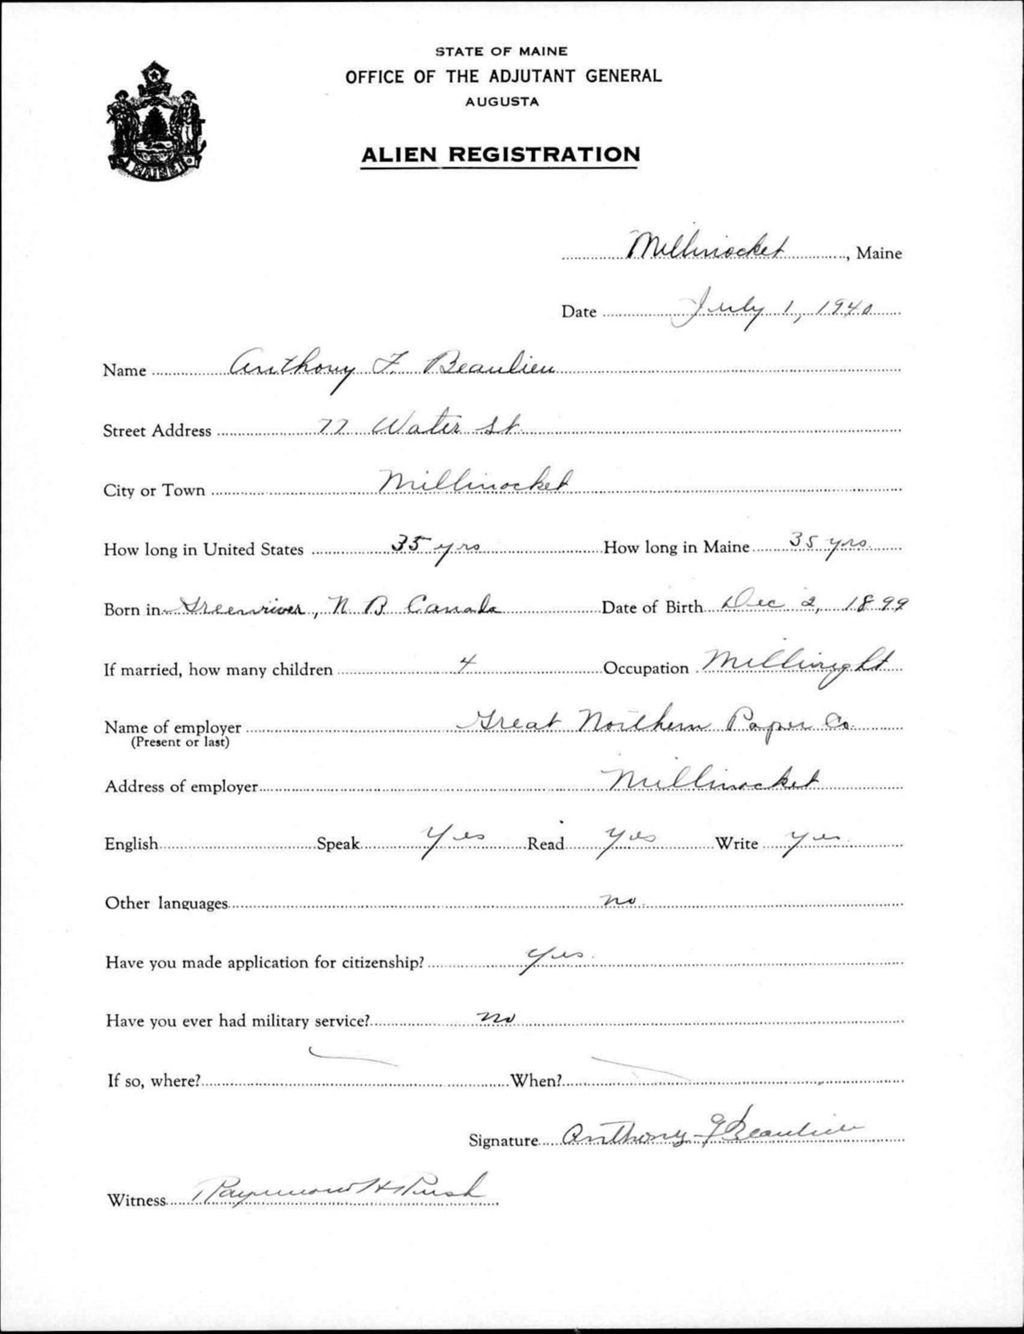 STATE OF MAINE
OFFICE OF THE ADJUTANT GENERAL
AUGUSTA
ALIEN REGISTRATION
MAINE
Millinocket, Maine
Date July 1, 1940
Name Anthony F. Beaulieu
Street Address 77 Water St.
City or Town Millinocket
How long in United States 35 yrs How long in Maine 35 yrs
Born in Greenriver, N B Canada Date of Birth Dec 2, 1899
If married, how many children 4 Occupation Millwright
Name of employer Great Northern Paper Co.
(Present or last)
Address of employer Millinocket
English Speak Yes Read Yes Write Yes
Other languages no
Have you made application for citizenship? Yes
Have you ever had military service? No
If so, where? When?
Signature Anthony Beaulieu
Witness Raymond H Rush